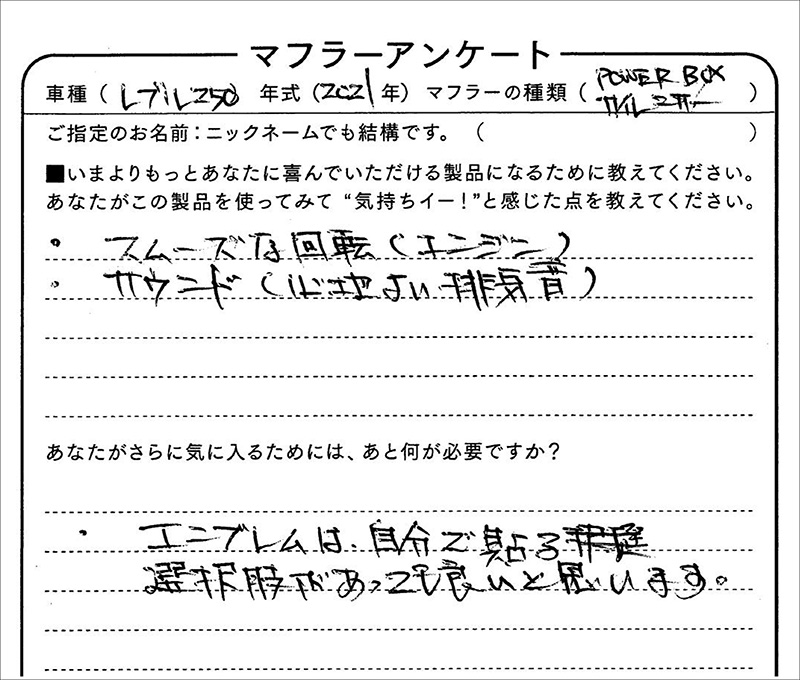 マフラーアンケート
車種（レブル250 年式（2021年）マフラーの種類（POWER BOX サイレンサー）
ご指定のお名前：ニックネームでも結構です。（ ）
■いまよりもっとあなたに喜んでいただける製品になるために教えてください。
あなたがこの製品を使ってみて“気持ちイー！”と感じた点を教えてください。
・スムーズな回転（エンジン）
・サウンド（心地よい排気音）
あなたがさらに気に入るためには、あと何が必要ですか？
・エンブレムは、自分で貼る
選択肢があっても良いと思います。